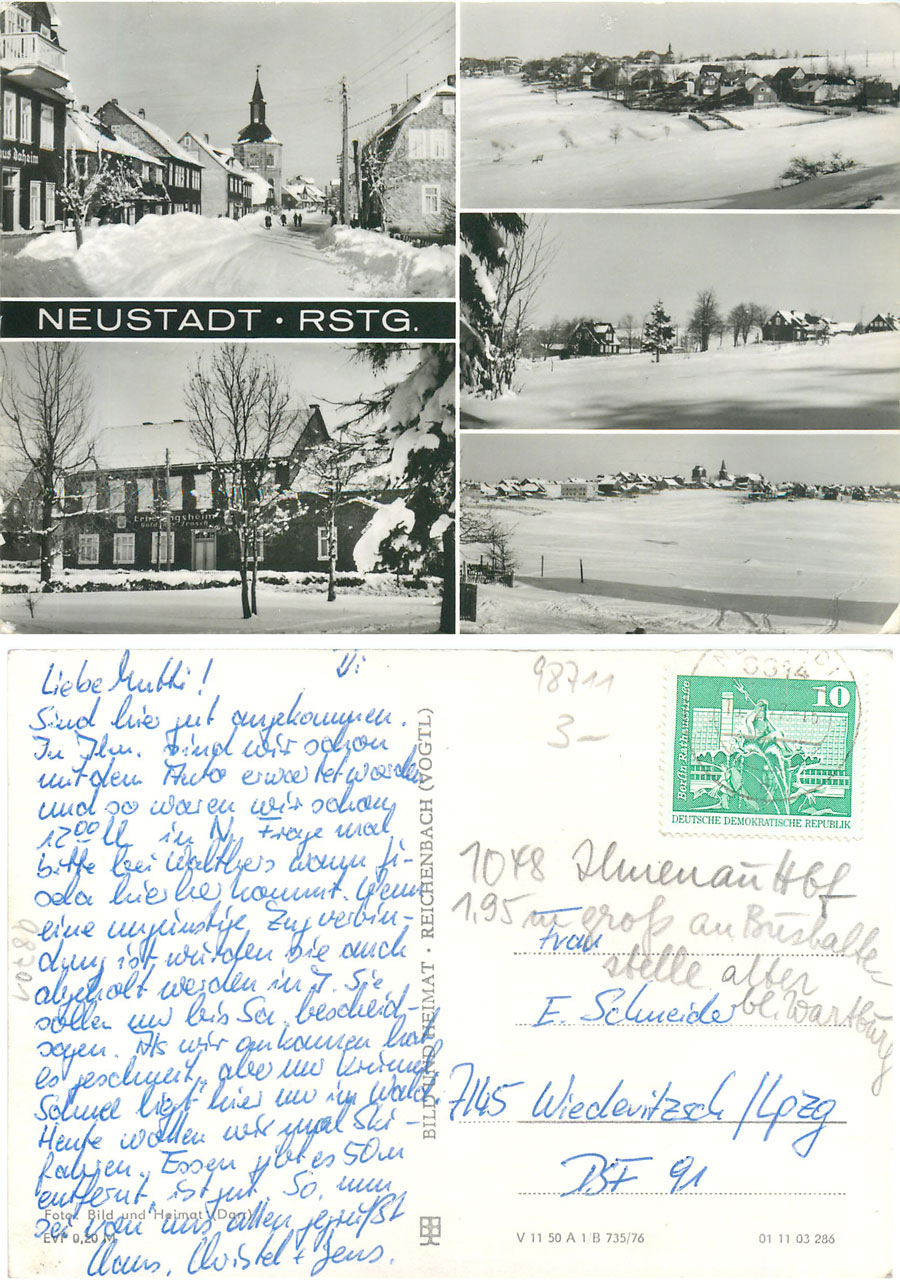 us daheim
NEUSTADT · RSTG.
Erholungsheim
Di
Liebe Mutti!
Sind hier gut angekommen.
In Ilm. sind wir schon
mit dem Auto erwartet worden
und so waren wir schon
12⁰⁰ U in N. Frage mal
bitte bei Walthers wann
hierher kommt. Wenn
eine ungünstige Zugverbin-
dung ist würden sie auch
abgeholt werden in J. Sie
sollen nur bis Sa. bescheid-
sagen. Als wir ankamen hat
es geschneit, aber nur
Schnee liegt hier nur im Wald.
Heute wollen wir mal Ski-
fahren. Essen gibt es 50m
entfernt, ist gut. So, nun
sei von uns allen gegrüßt
Claus, Christel + Jens.
Foto: Bild und Heimat (Dagg)
EVP 0,20 M
08701
BILD UND HEIMAT · REICHENBACH (VOGTL)
98711
3-
10
Berlin Rathausstraße
DEUTSCHE DEMOKRATISCHE REPUBLIK
1048 Ilmenau Hbf
1,95 m groß an Bushalte-
stelle alter
bl. Wartburg
Frau
E. Schneider
7145 Wiederitzsch/Lpzg
DSF 91
V 11 50 A 1/B 735/76
01 11 03 286